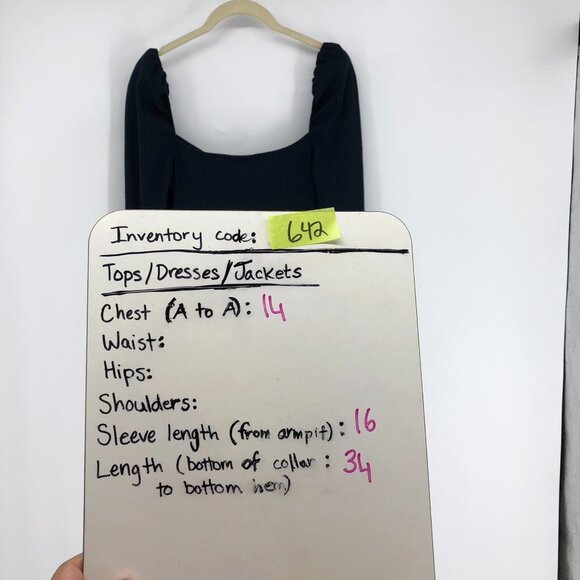 Inventory code: 642
Tops/Dresses/Jackets
Chest (A to A): 14
Waist:
Hips:
Shoulders:
Sleeve length (from armpit): 16
Length (bottom of collar : 34
to bottom hem)